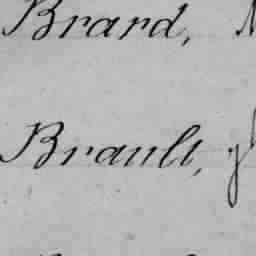 Brard,
Brault,